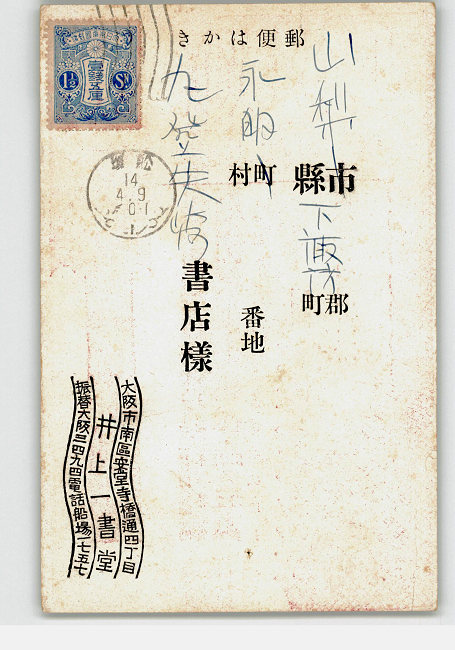 郵便はかき
山梨縣市下諏訪郡町
永明町村 番地
矢崎書店様
壹錢五厘
1½ Sn
14
4.9
大阪市南區安堂寺橋通四丁目
井上一書堂
振替大阪三四九四電話船場一七五七